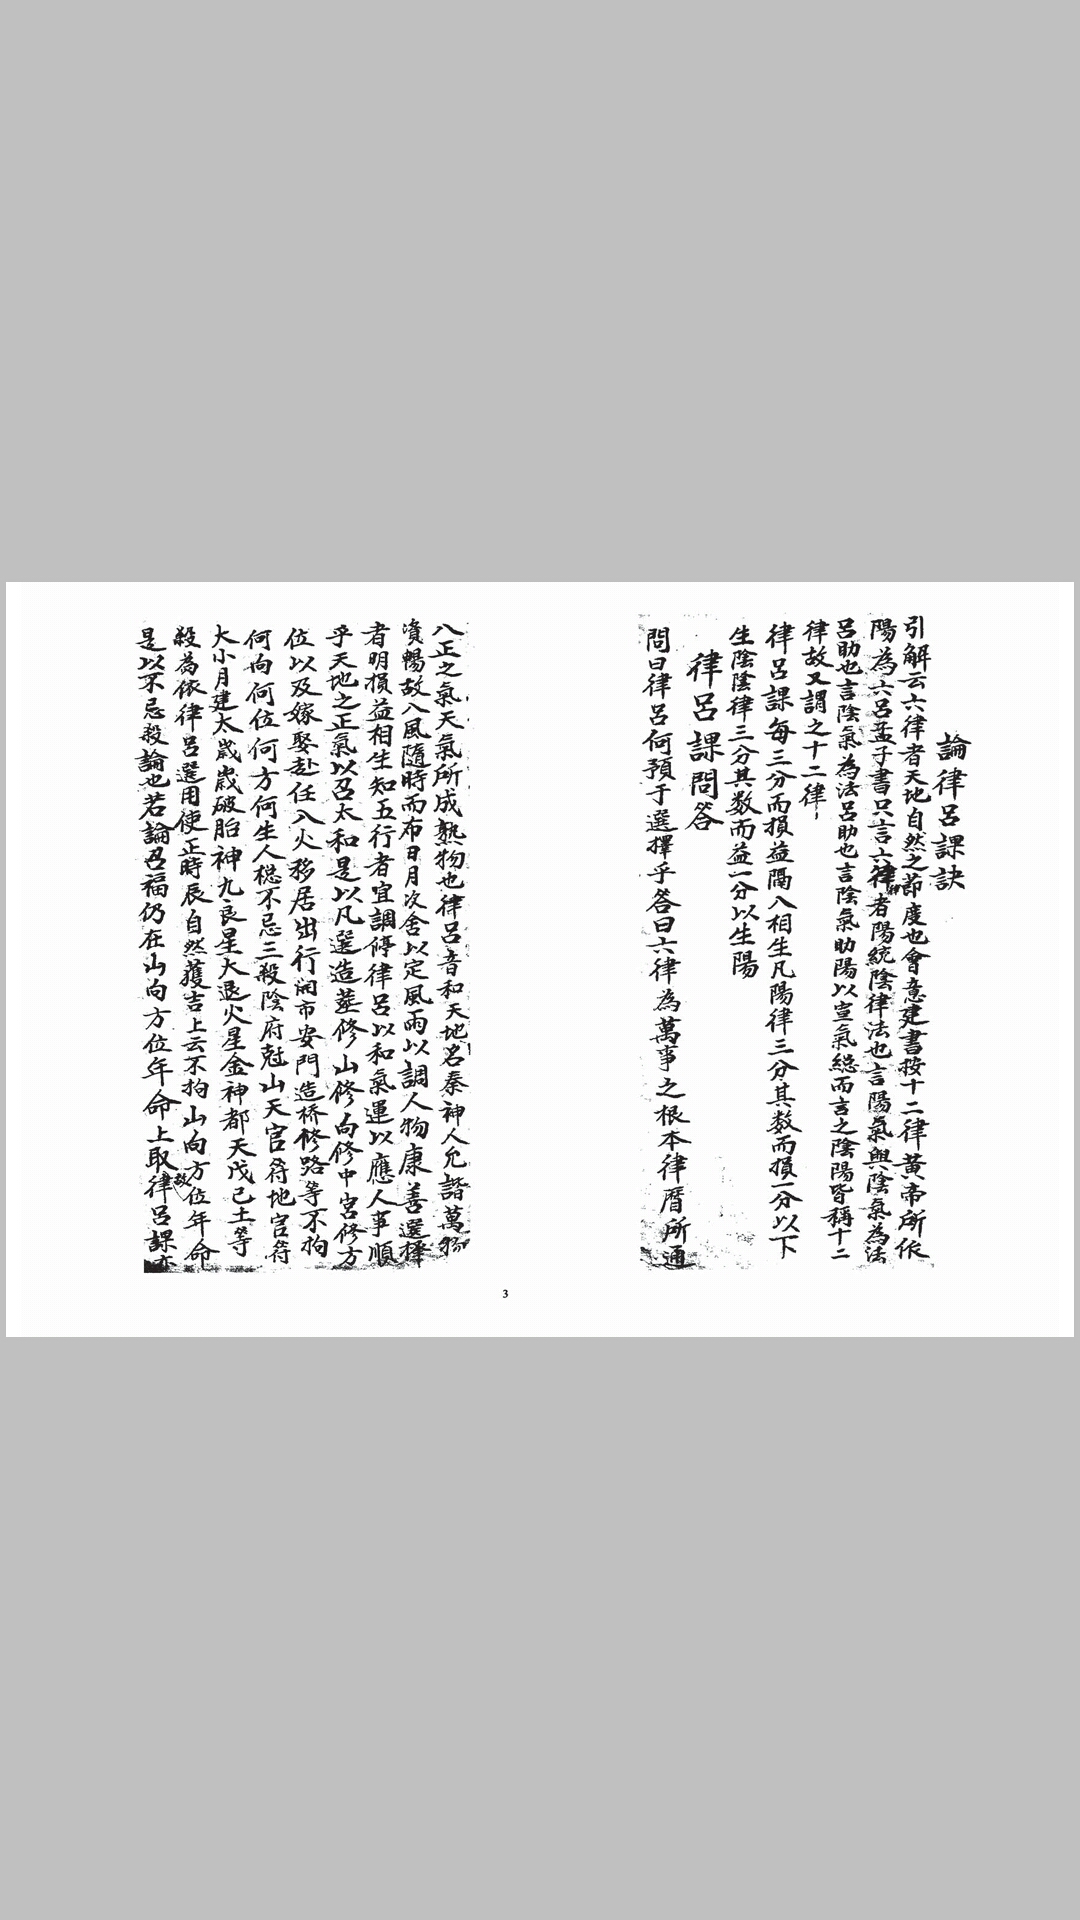 論律呂課訣
引解云六律者天地自然之節度也會意建書按十二律黃帝所依
陽為六呂孟子書只言六律者陽統陰律法也言陽氣與陰氣為法
呂助也言陰氣為法呂助也言陰氣助陽以宣氣總而言之陰陽皆稱十二
律故又謂之十二律
律呂課每三分而損益隔八相生凡陽律三分其数而損一分以下
生陰陰律三分其数而益一分以生陽
律呂課問答
問曰律呂何預于選擇乎答曰六律為萬事之根本律曆所通
八正之氣天氣所成熟物也律呂音和天地名秦神人允諧萬物
資暢故八風隨時而布日月次舍以定風雨以調人物康善選擇
者明損益相生知五行者宜調停律呂以和氣運以應人事順
乎天地之正氣以召太和是以凡選造塟修山修向修中宮修方
位以及嫁娶赴任入火移居出行開市安門造桥修路等不拘
何向何位何方何生人楤不忌三殺陰府尅山天官符地官符
大小月建太歲歲破胎神九良星大退火星金神都天戊己土等
殺為依律呂選用使正時辰自然獲吉上云不拘山向方位年命
是以不忌殺論也若論召福仍在山向方位年命上取律呂課亦
3